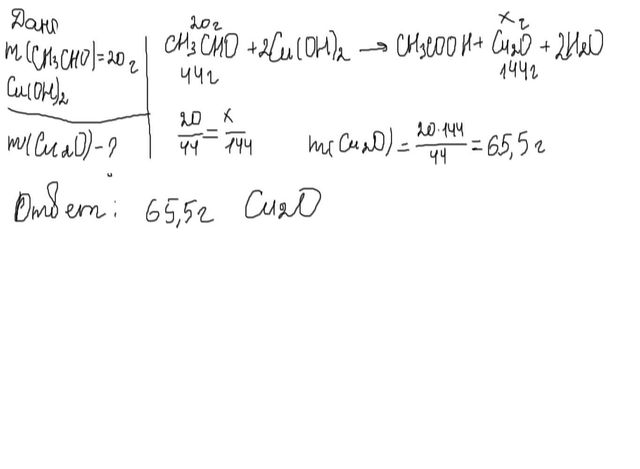 Дано
m(CH₃CHO)=20г
Cu(OH)₂
m(Cu₂O)-?
20г х г
CH₃CHO + 2Cu(OH)₂ → CH₃COOH + Cu₂O + 2H₂O
44г 144г
20/44 = х/144 m(Cu₂O) = 20·144/44 = 65,5 г
Ответ: 65,5г Cu₂O